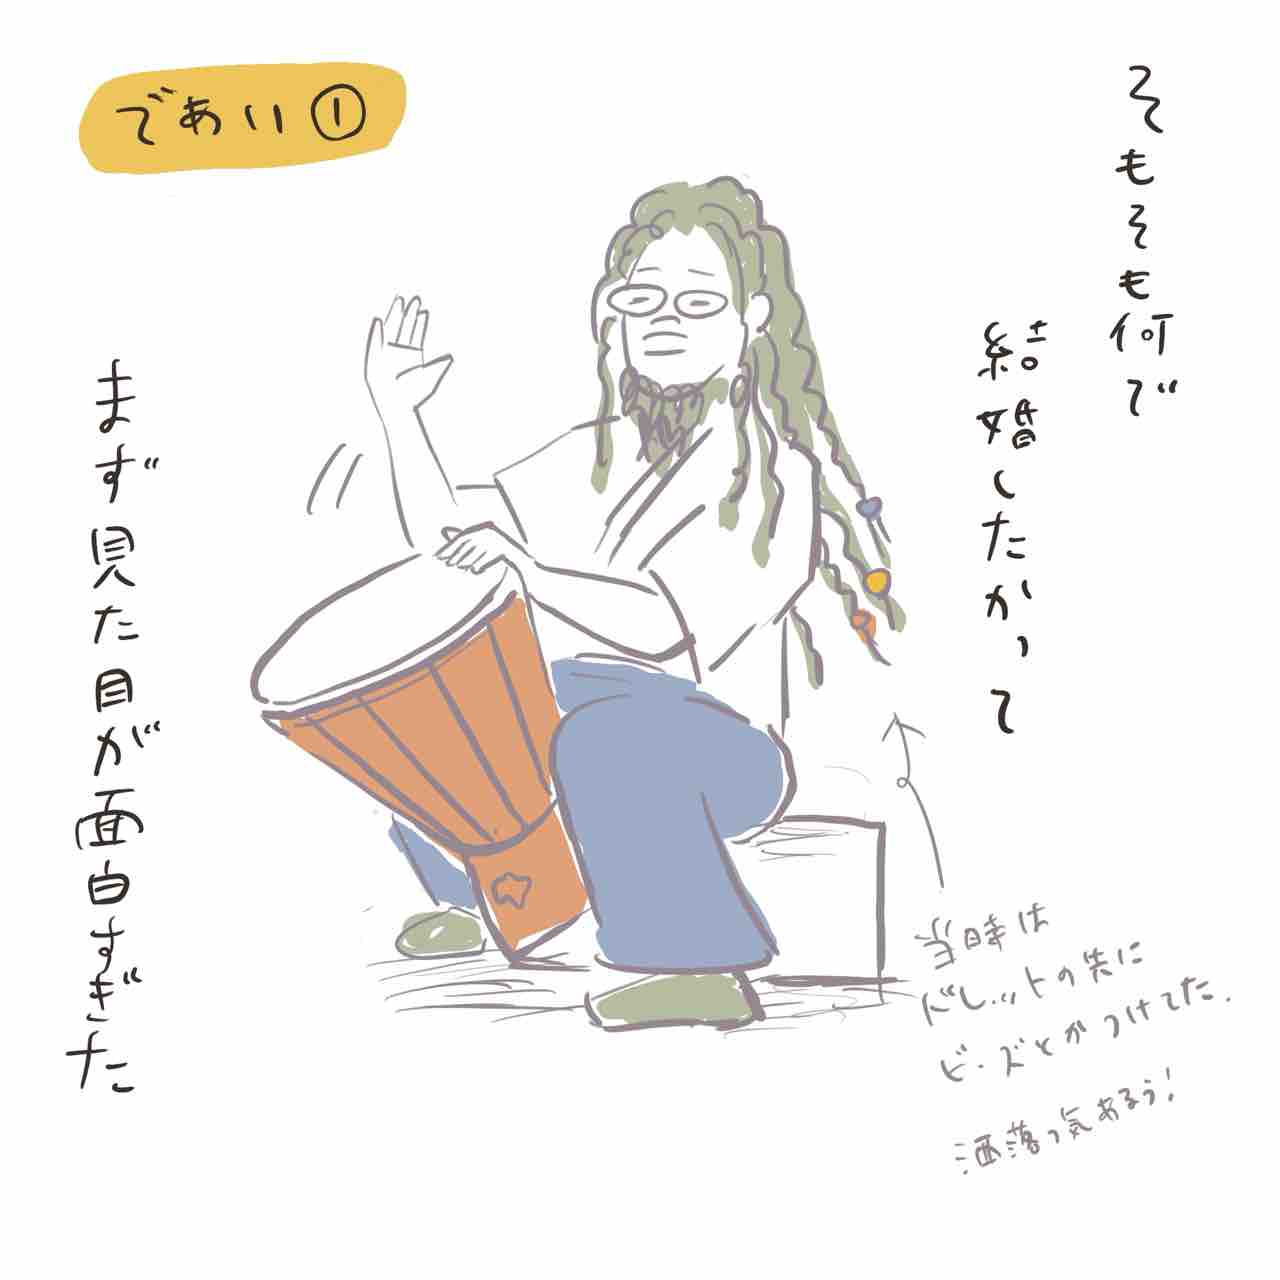 であい①
そもそも何で
結婚したかって
まず見た目が面白すぎた
当時は
ドレットの先に
ビーズとかつけてた.
洒落っ気あるぅ!